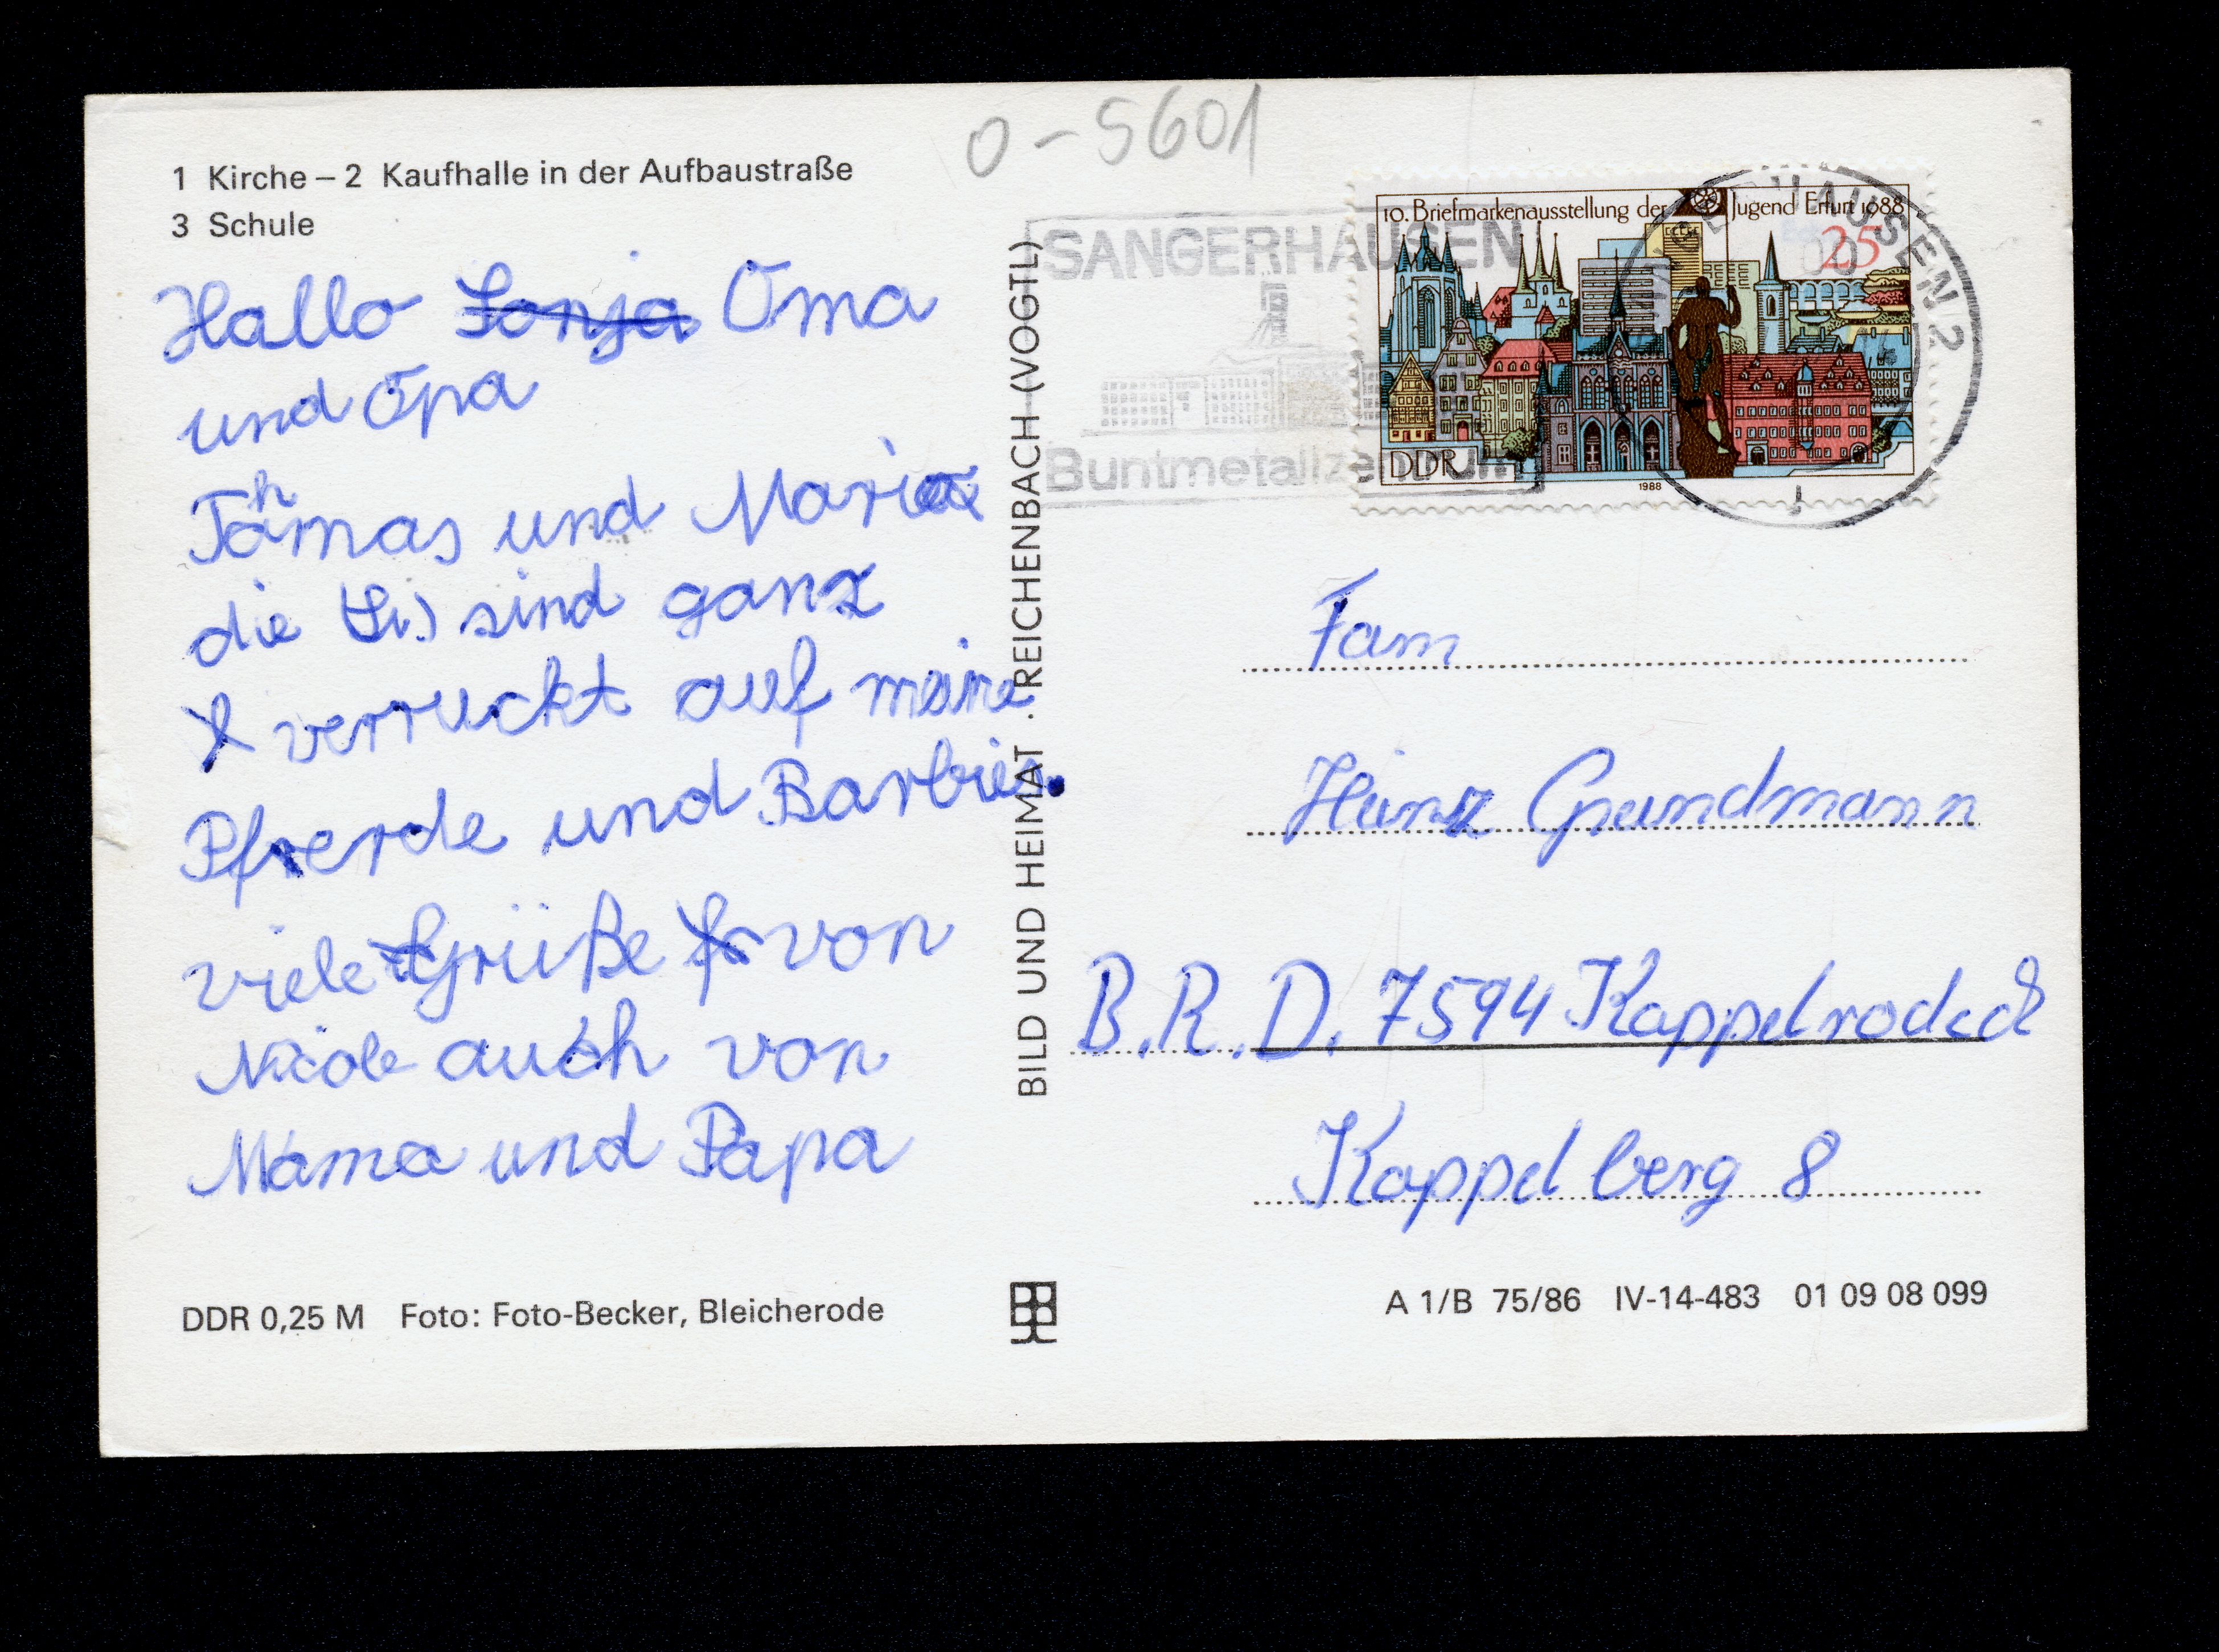 O-5601
1 Kirche – 2 Kaufhalle in der Aufbaustraße
3 Schule
Hallo Sonja Oma
und Opa
Thomas und Maria
die sind ganz
verruckt auf meine
Pferde und Barbies.
viele Grüße von
Nicole auch von
Mama und Papa
DDR 0,25 M Foto: Foto-Becker, Bleicherode
BILD UND HEIMAT · REICHENBACH (VOGTL)
SANGERHAUSEN
Buntmetallzentrum
10. Briefmarkenausstellung der Jugend Erfurt 1988
25
DDR
1988
SANGERHAUSEN 2
Fam
Heinz Grundmann
B.R.D. 7594 Kappelrodeck
Kappelberg 8
A 1/B 75/86 IV-14-483 01 09 08 099